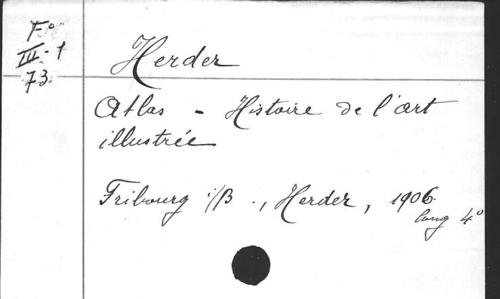 Fo
III-1
73.
Herder
Atlas - Histoire de l'art
illustrée
Fribourg i/B., Herder, 1906.
long 4°